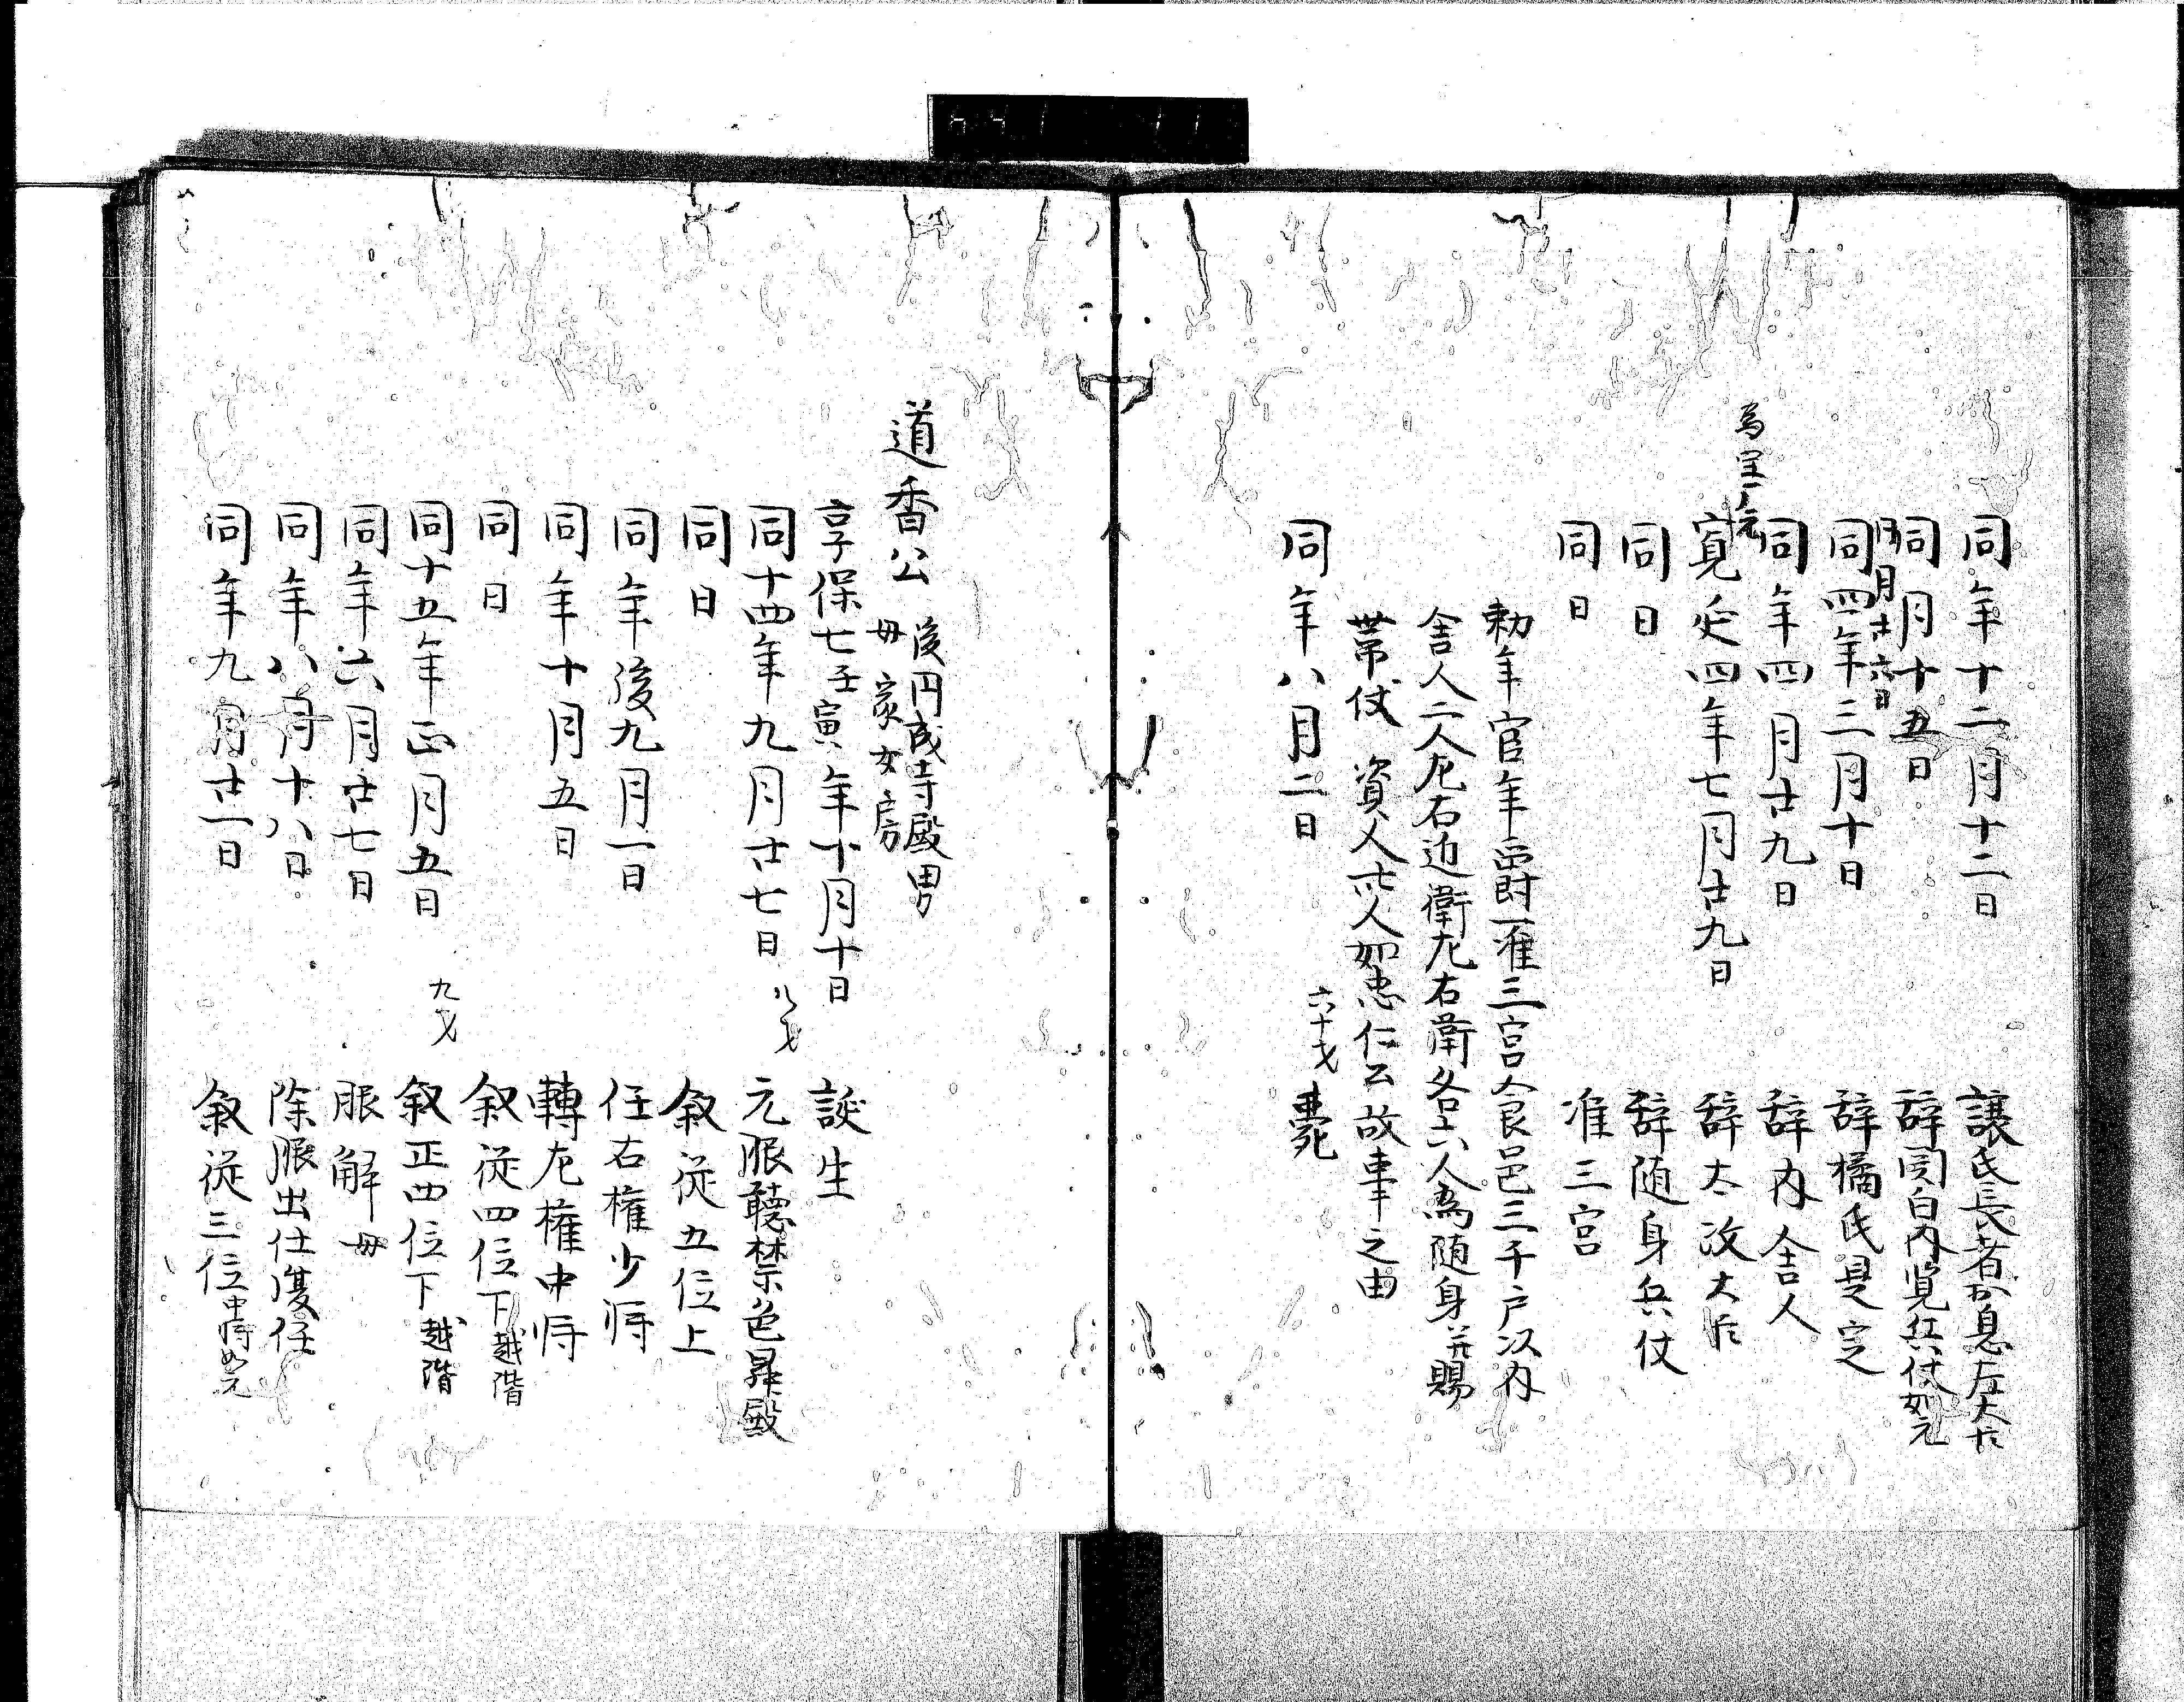 同年十二月十二日　讓氏長者於息左大臣
同月十五日　辞関白内覧兵仗如元
同月廿六日
同四年三月十日　辞橘氏是定
同年四月廿九日　辞内舎人
為
寛延四年七月廿九日　辞太政大臣
同日　辞随身兵仗
同日　准三宮
勅年官年爵准三宮食邑三千戸以内
舎人二人左右近衛左右衛各六人為随身并賜
帯仗資人卅人如忠仁公故事之由
同年八月二日　六十才　薨
道香公　後円成寺殿男
母家女房
享保七壬寅年十月十日　誕生
同十四年九月廿七日　八才　元服聴禁色昇殿
同日　叙従五位上
同年後九月一日　任右権少将
同年十月五日　轉左権中将
同日　叙従四位下越階
同十五年正月五日　九才　叙正四位下越階
同年六月廿七日　服解母
同年八月十八日　除服出仕復任
同年九月廿一日　叙従三位中将如元